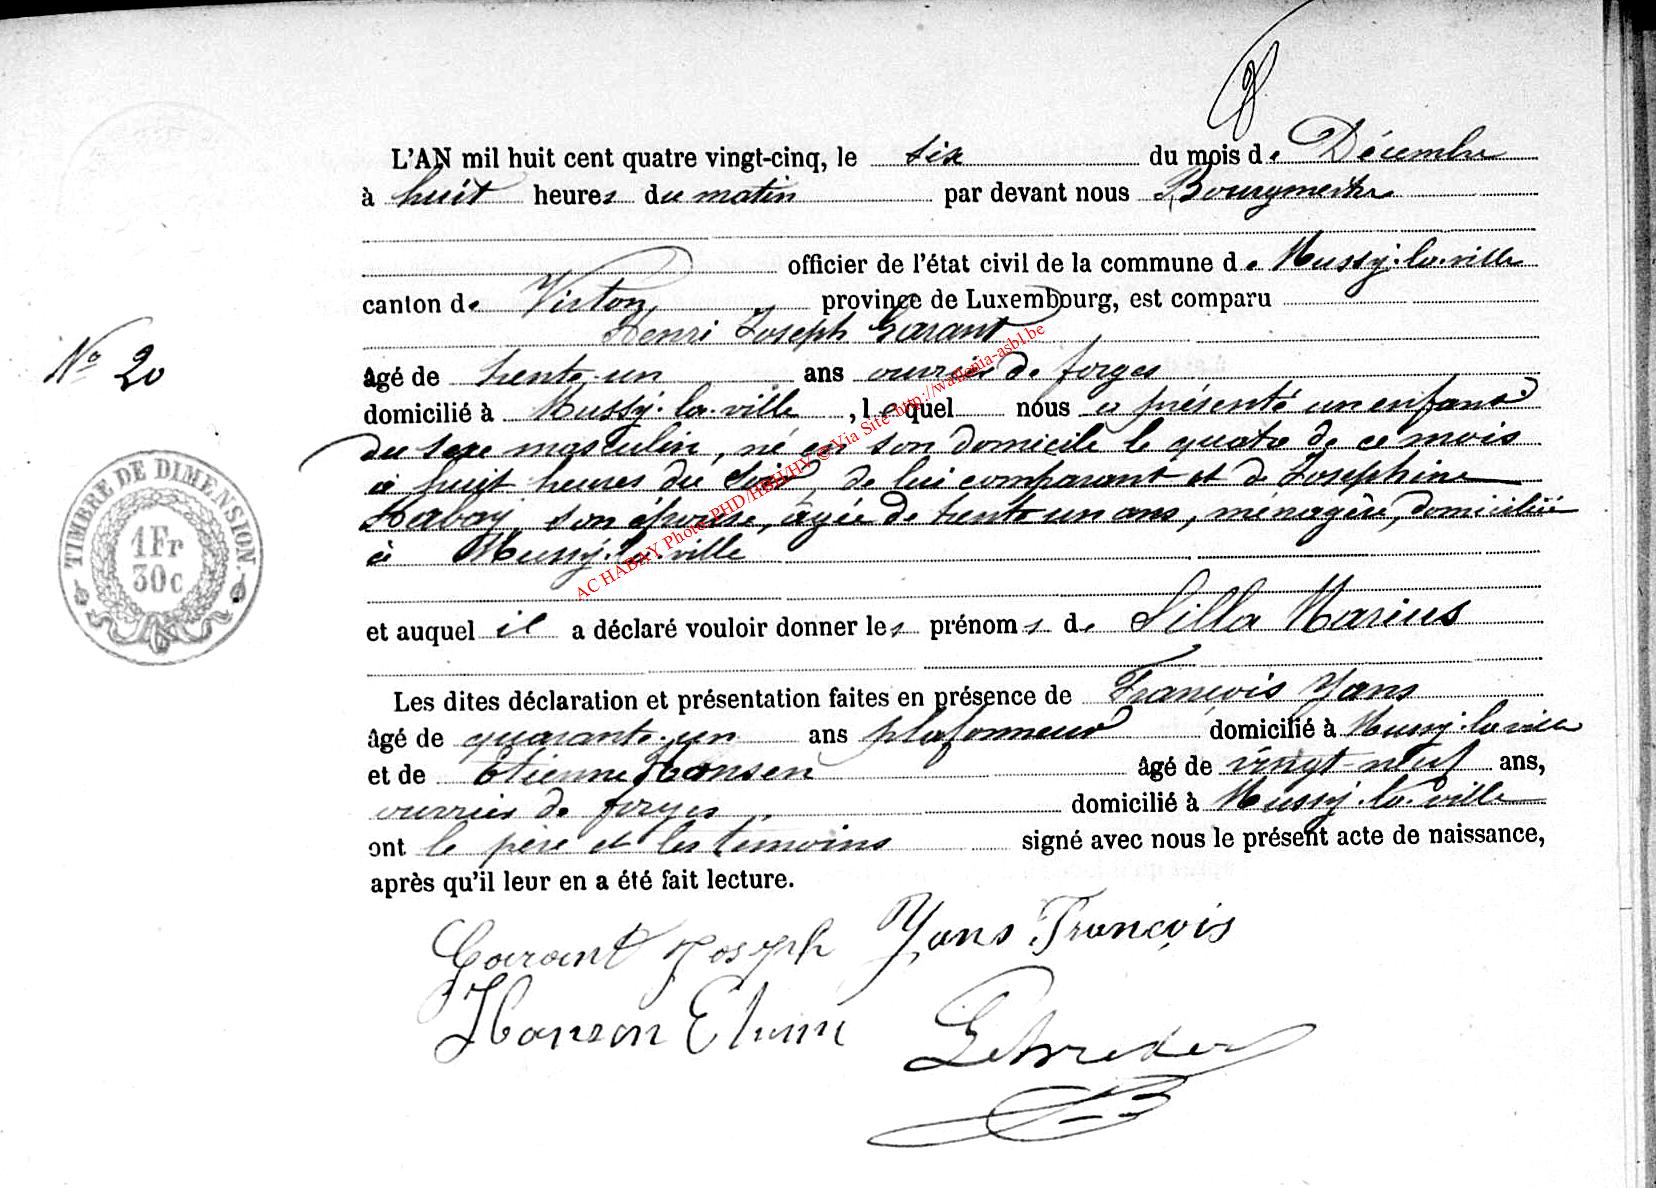 L'AN mil huit cent quatre vingt-cinq, le six du mois de Décembre
à huit heures du matin par devant nous Bourgmestre
officier de l'état civil de la commune de Mussy-la-ville
canton de Virton province de Luxembourg, est comparu
Henri Joseph Garant
N° 20
âgé de trente-un ans ouvrier de forges
domicilié à Mussy-la-ville, lequel nous a présenté un enfant
du sexe masculin, né en son domicile le quatre de ce mois
à huit heures du soir, de lui comparant et de Josephine
Habay, son épouse, agée de trente un ans, ménagère, domiciliée
à Mussy-la-ville
TIMBRE DE DIMENSION
1Fr
30c
ACHABAY Photo PHD/HBH/HV © Via Site http://wallonia-asbl.be
et auquel il a déclaré vouloir donner les prénoms de Silla Marius
Les dites déclaration et présentation faites en présence de François Yans
âgé de quarante-un ans plafonneur domicilié à Mussy-la-ville
et de Etienne Hansen âgé de vingt-neuf ans,
ouvrier de forges domicilié à Mussy-la-ville
ont le père et les témoins signé avec nous le présent acte de naissance,
après qu'il leur en a été fait lecture.
Garant Joseph Yans François
Hanson